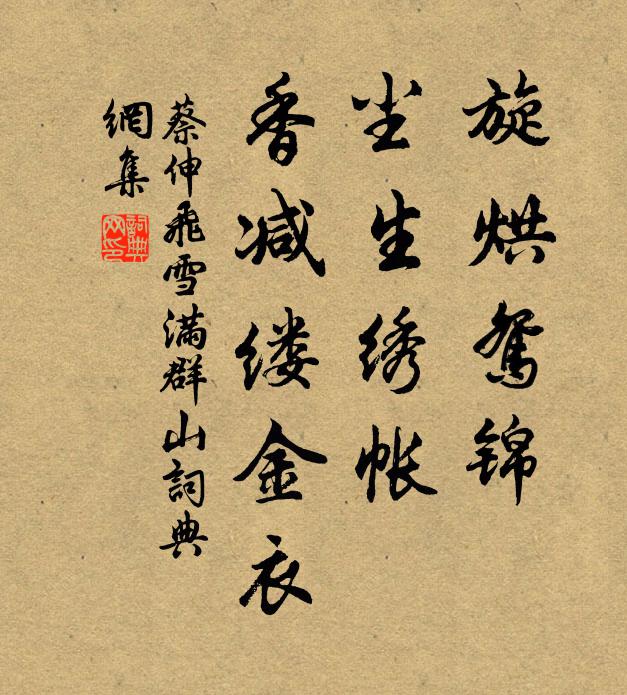 旋烘鸳锦
尘生绣帐
香减缕金衣
蔡伸飛雪滿群山詞典
網集
詞典
网印